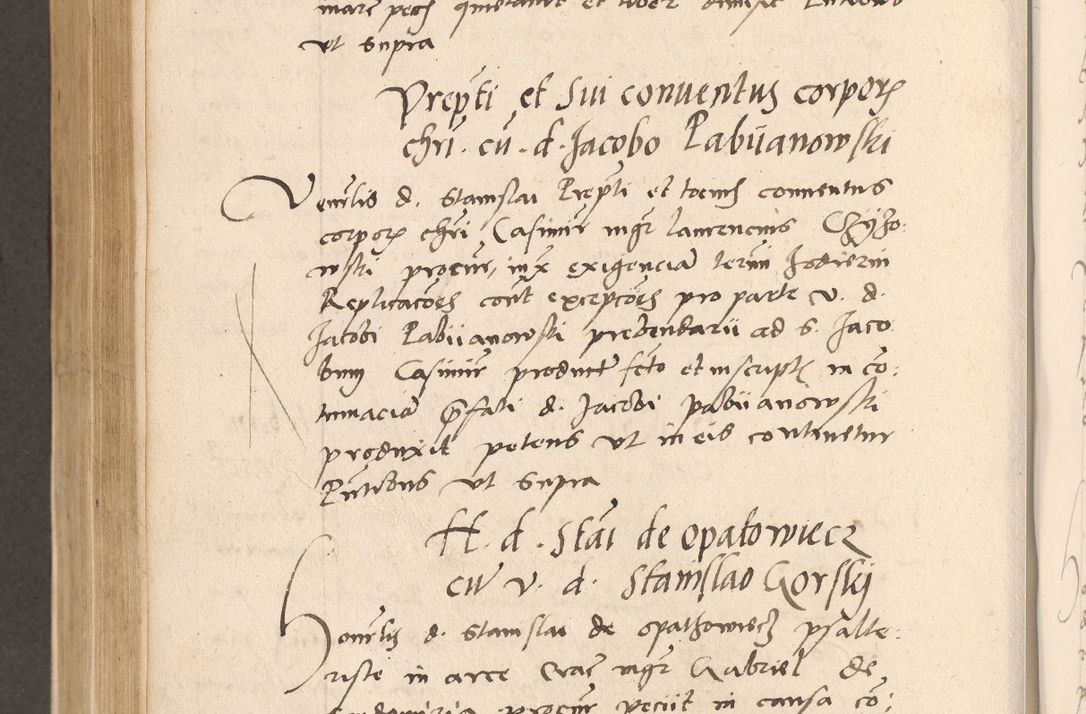 ut supra
Prepti et sui conventus corporis
chri. cu. d. Jacobo Pabiianowski
Venrlis d. Stanislai Prepti et tocius conventus
corporis chri Casimir mgr laurencius Chyzo:
wski procur, iux exigencia termi hodierni
Replicacoes cont excepcoes pro parte v. d.
Jacobi Pabiianowski prebendarii ad S. Jaco
bum Casimir product fcto et in scriptis in co:
tumacia pfati d. Jacobi pabiianowski
produxit petens ut in eis continetur
Pntibus ut supra
H. d. Stai de opatowiecz
cu v. d. Stanislao Gorskij
Honrlis d. Stanislai de opathowiecz psalte:
riste in arce Crac mgr Gabriel de
procur peciit in causa co: